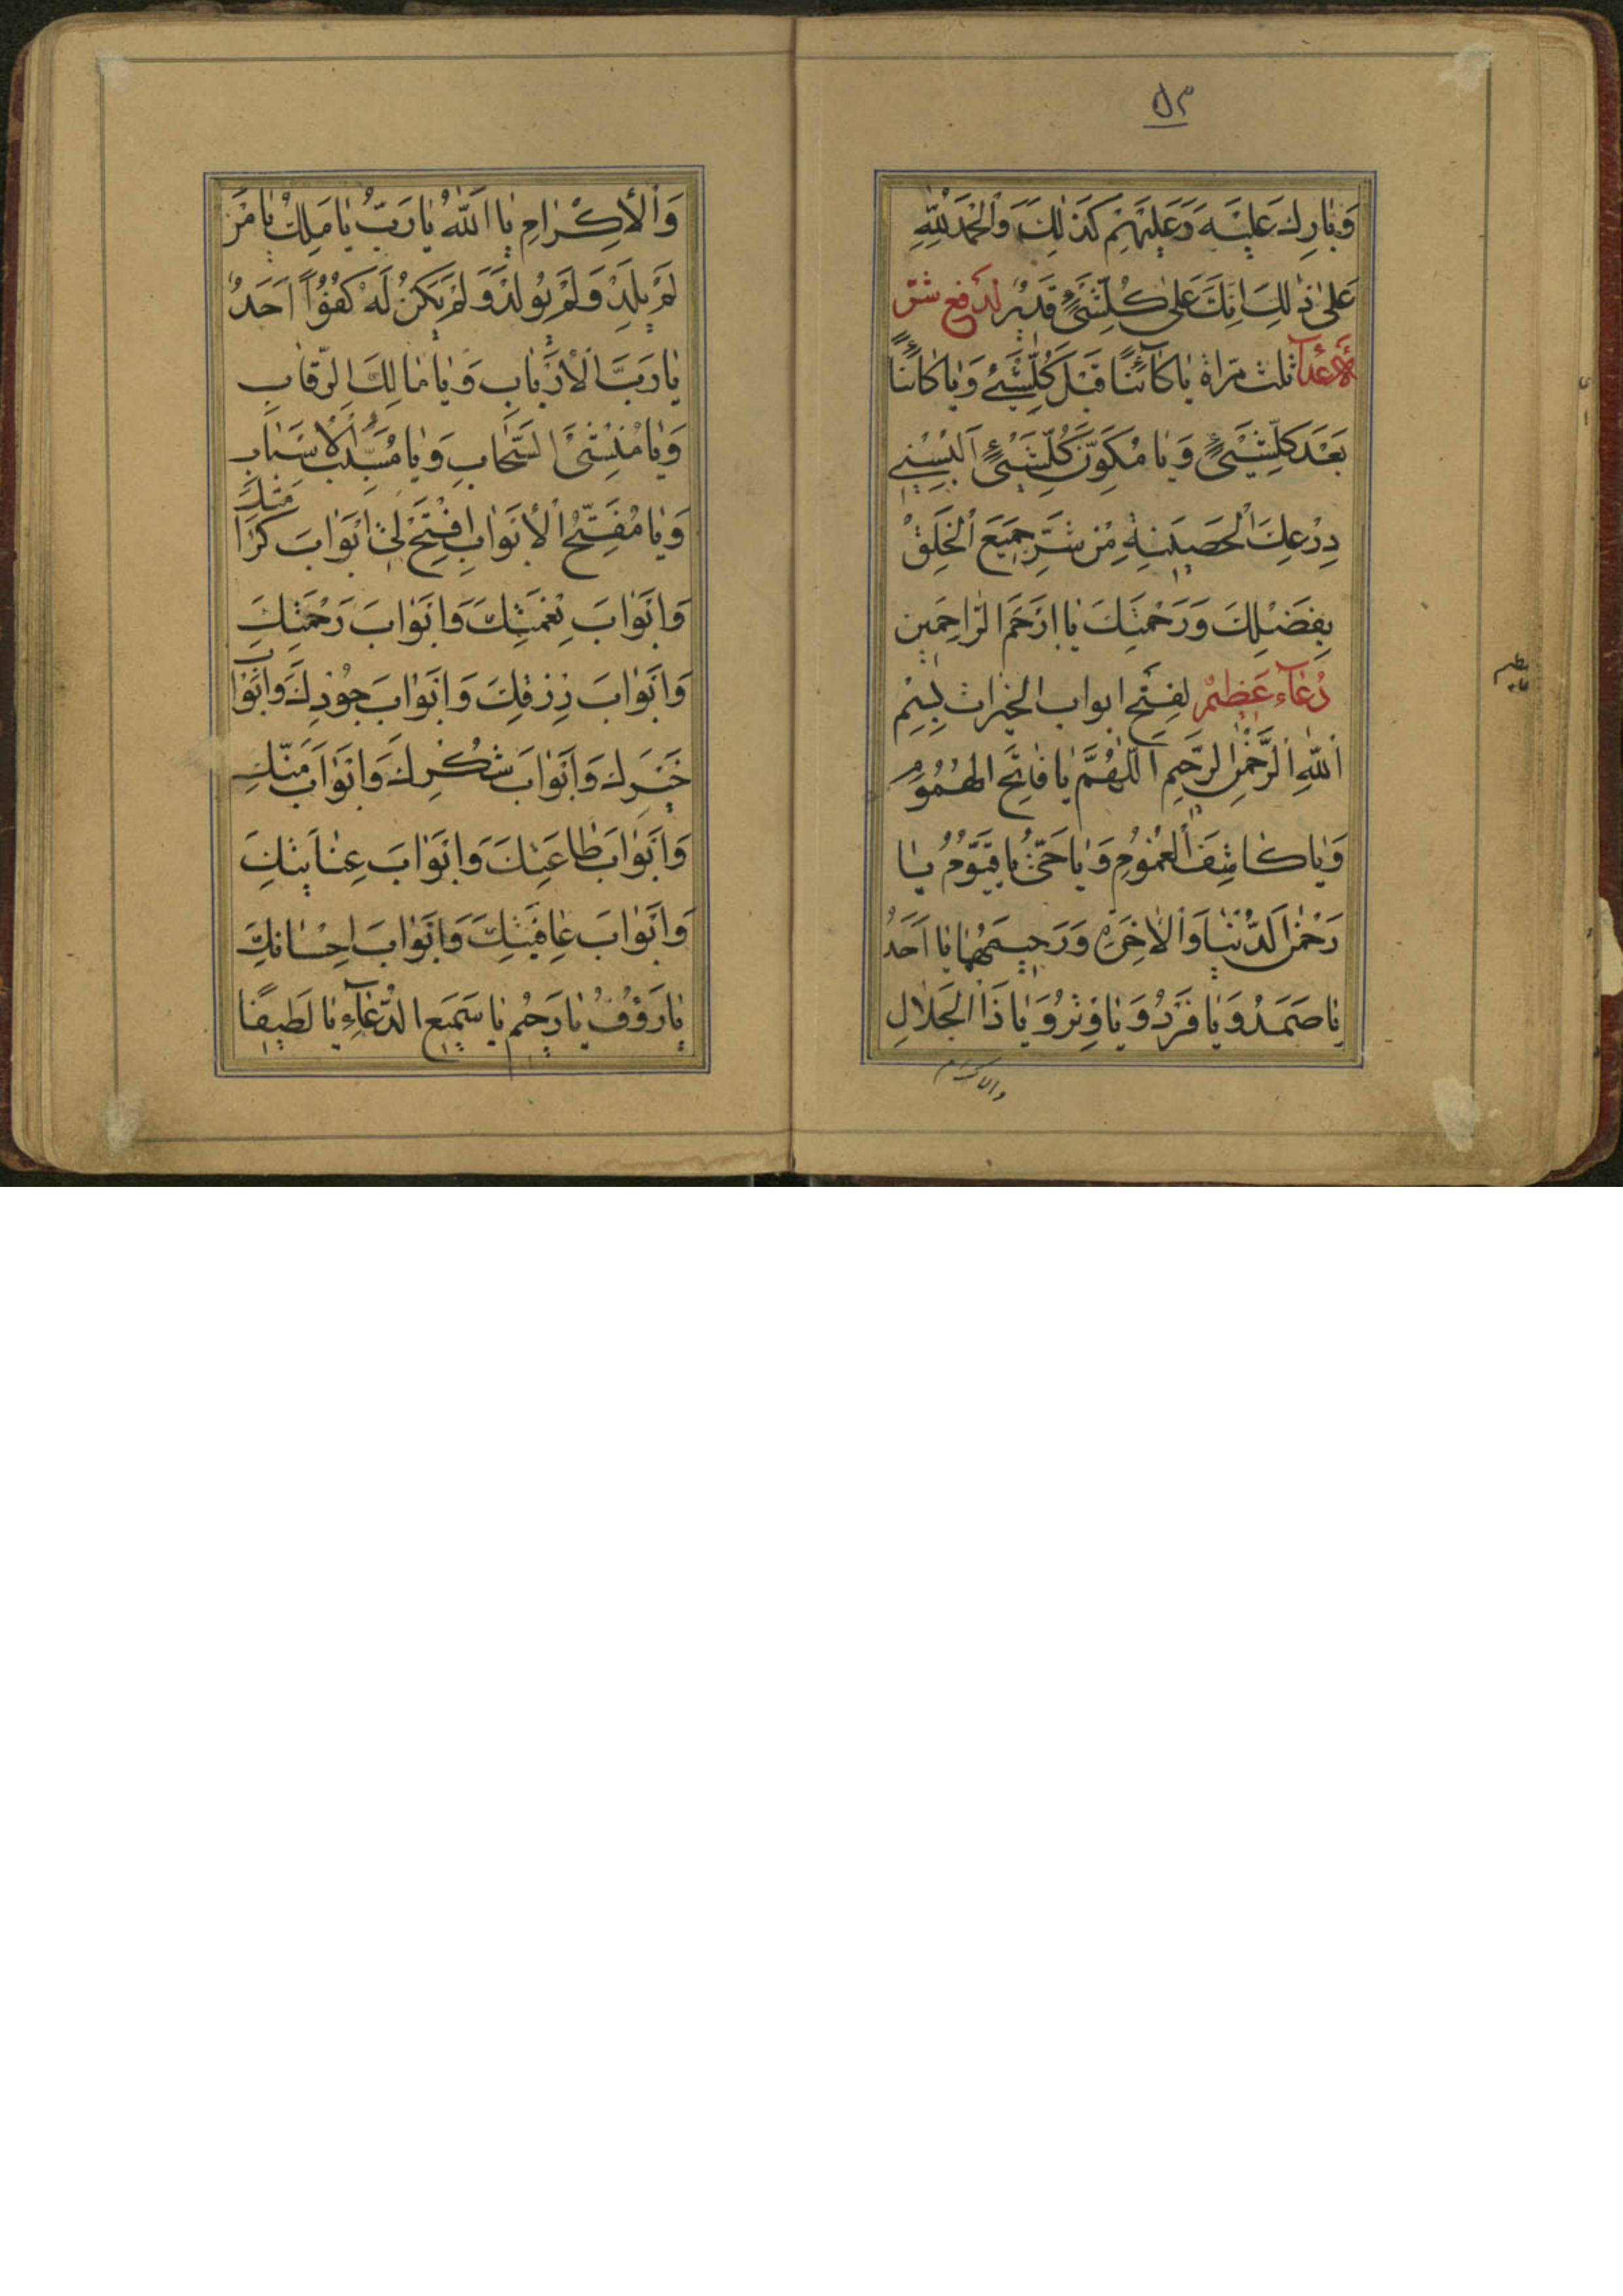 ٥٣
وَبَارِكْ عَلَيْهِ وَعَلَيْهِمْ كَذٰلِكَ وَالْحَمْدُ لِلّٰهِ
عَلىٰ ذٰلِكَ اِنَّكَ عَلىٰ كُلِّشَیْءٍ قَدِيْرٌ لدفع شر
الاعدآ ثلث مراة يَا كَآئِنًا قَبْلَ كُلِّشَیْءٍ وَيَا كَآئِنًا
بَعْدَ كُلِّشَیْءٍ وَيَا مُكَوِّنَ كُلِّشَیْءٍ اَلْبِسْنِي
دِرْعِكَ الْحَصِيْنَةِ مِنْ شَرِّ جَمِيْعِ الْخَلْقِ
بِفَضْلِكَ وَرَحْمَتِكَ يَا اَرْحَمَ الرَّاحِمِين
دُعآء عَظِيمْ لفتح ابواب الخيرات بِسْمِ
اللّٰهِ الرَّحْمٰنِ الرَّحِيمِ اَللّٰهُمَّ يَا فَاتِحَ الهُمُوْمِ
وَيَا كَاشِفَ الْغُمُوْمِ وَيَا حَیُّ يَا قَيُّوْمُ يَا
رَحْمٰنَ الدُّنْيَا وَالْاٰخِرَةِ وَرَحِيمَهُمَا يَا اَحَدُ
يَا صَمَدُ وَيَا فَرْدُ وَيَا وِتْرُ وَيَا ذَا الْجَلَالِ
والاكرام
وَالْاِكْرَامِ يَا اَللّٰهُ يَا رَبُّ يَا مَلِكُ يَا مَنْ
لَمْ يَلِدْ وَلَمْ يُولَدْ وَلَمْ يَكُنْ لَهُ كُفُوًا اَحَدٌ
يَا رَبَّ الْاَرْبَابِ وَيَا مَالِكَ الرِّقَابِ
وَيَا مُنْشِئَ السَّحَابِ وَيَا مُسَبِّبَ الْاَسْبَابِ
وَيَا مُفَتِّحَ الْاَبْوَابِ اِفْتَحْ لِیْ اَبْوَابَ كَرَامَتِكَ
وَاَبْوَابَ نِعْمَتِكَ وَاَبْوَابَ رَحْمَتِكَ
وَاَبْوَابَ رِزْقِكَ وَاَبْوَابَ جُوْدِكَ وَاَبْوَابَ
خَيْرِكَ وَاَبْوَابَ شُكْرِكَ وَاَبْوَابَ مَنِّكَ
وَاَبْوَابَ طَاعَتِكَ وَاَبْوَابَ عِنَايَتِكَ
وَاَبْوَابَ عَافِيَتِكَ وَاَبْوَابَ اِحْسَانِكَ
يَا رَؤُفُ يَا رَحِيْم يَا سَمِيعَ الدُّعَآءِ يَا لَطِيفًا